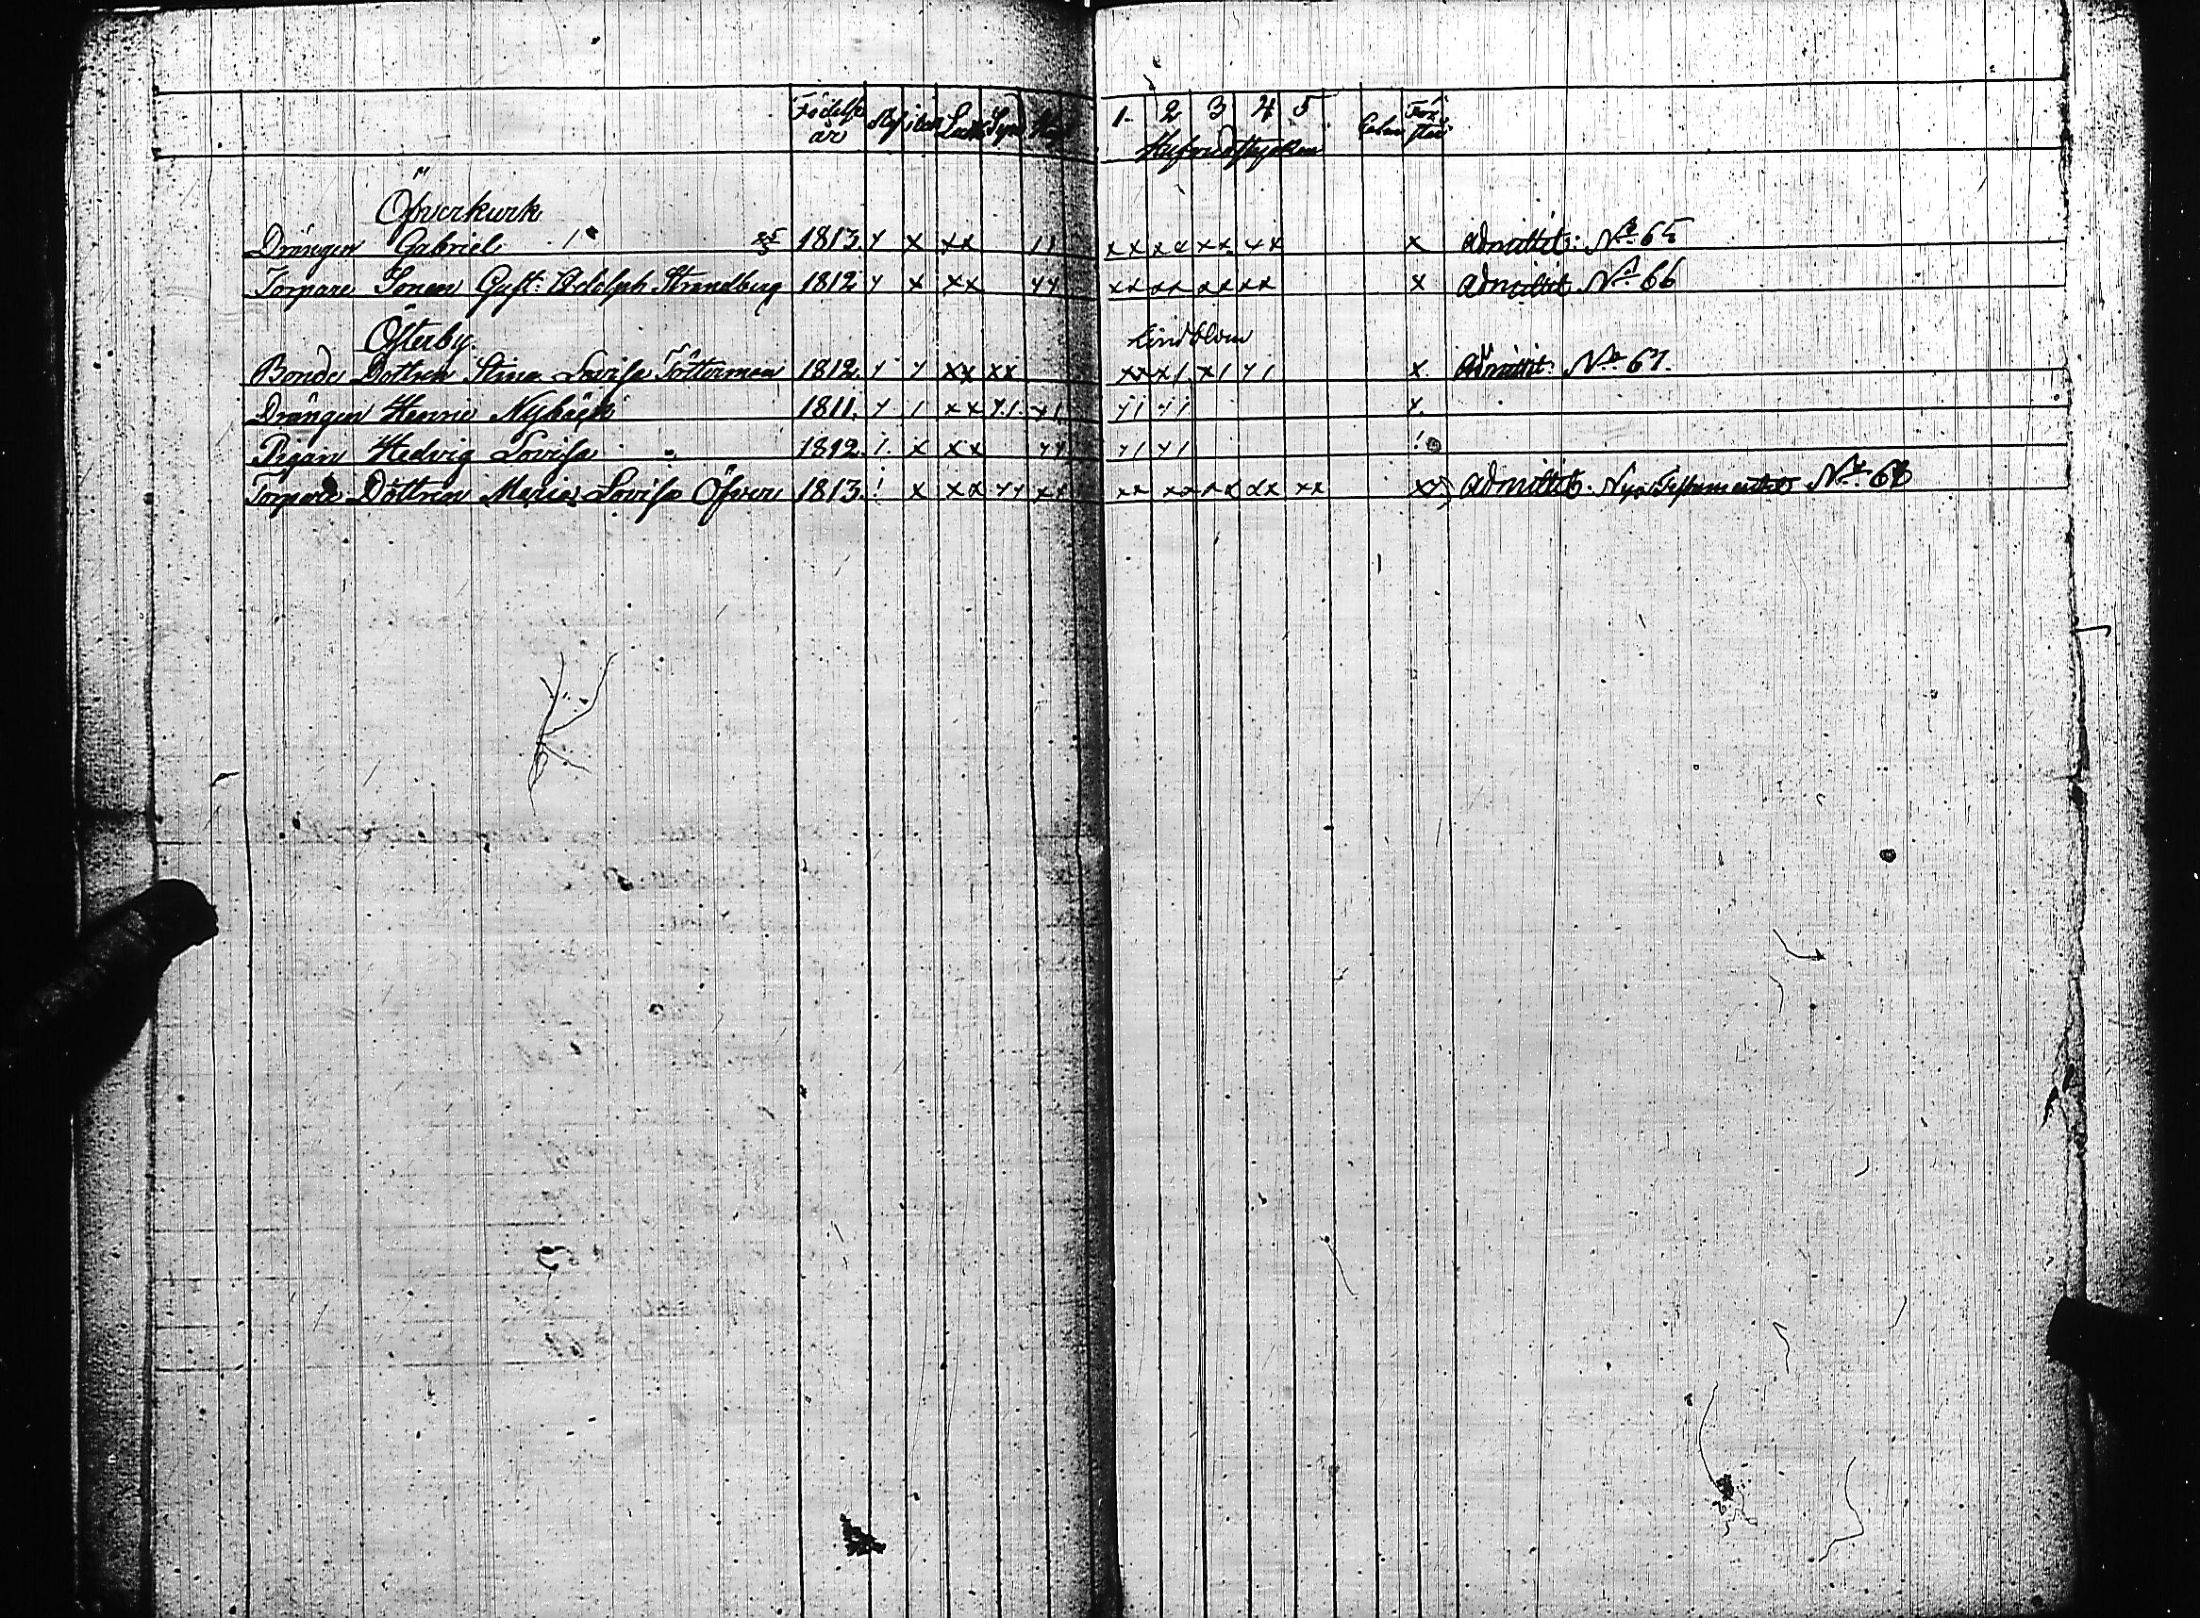 Födelse år 1. 2 3 4 5 För stån
Hufvudstycken
Öfverkurk
Drängen Gabriel 1813 y x xx 11 xx xx xx xx x admittit: No 65
Torpare Sonen Gust: Adolph Strandberg 1812 y x xx yy xx xx xx xx x admittit No 66
Österby. Lindblom
Bonde Dottren Stina Lovisa Tötterman 1812 y y xx xx xx x1 x1 y1 x. admittit: No 67.
Drängen Henric Nybäck 1811. y 1 xx y1. y1 y1 y1 y.
Pigan Hedvig Lovisa 1812. 1. x xx yy y1 y1 !
Torpare Dottren Maria Lovisa Öfver 1813. ! x xx yy xx xx xx xx xx xx xx admittit. Nya Testamentet No 68